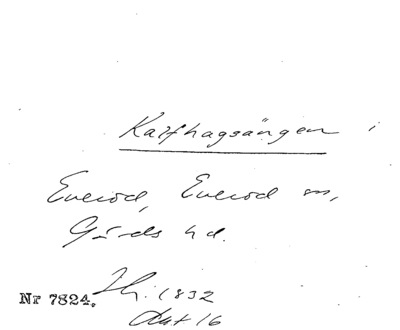 Kalfhagsängen i
Everöd, Everöd sn,
Gärds hd.
Nr 7824. Lh. 1832
Akt 16